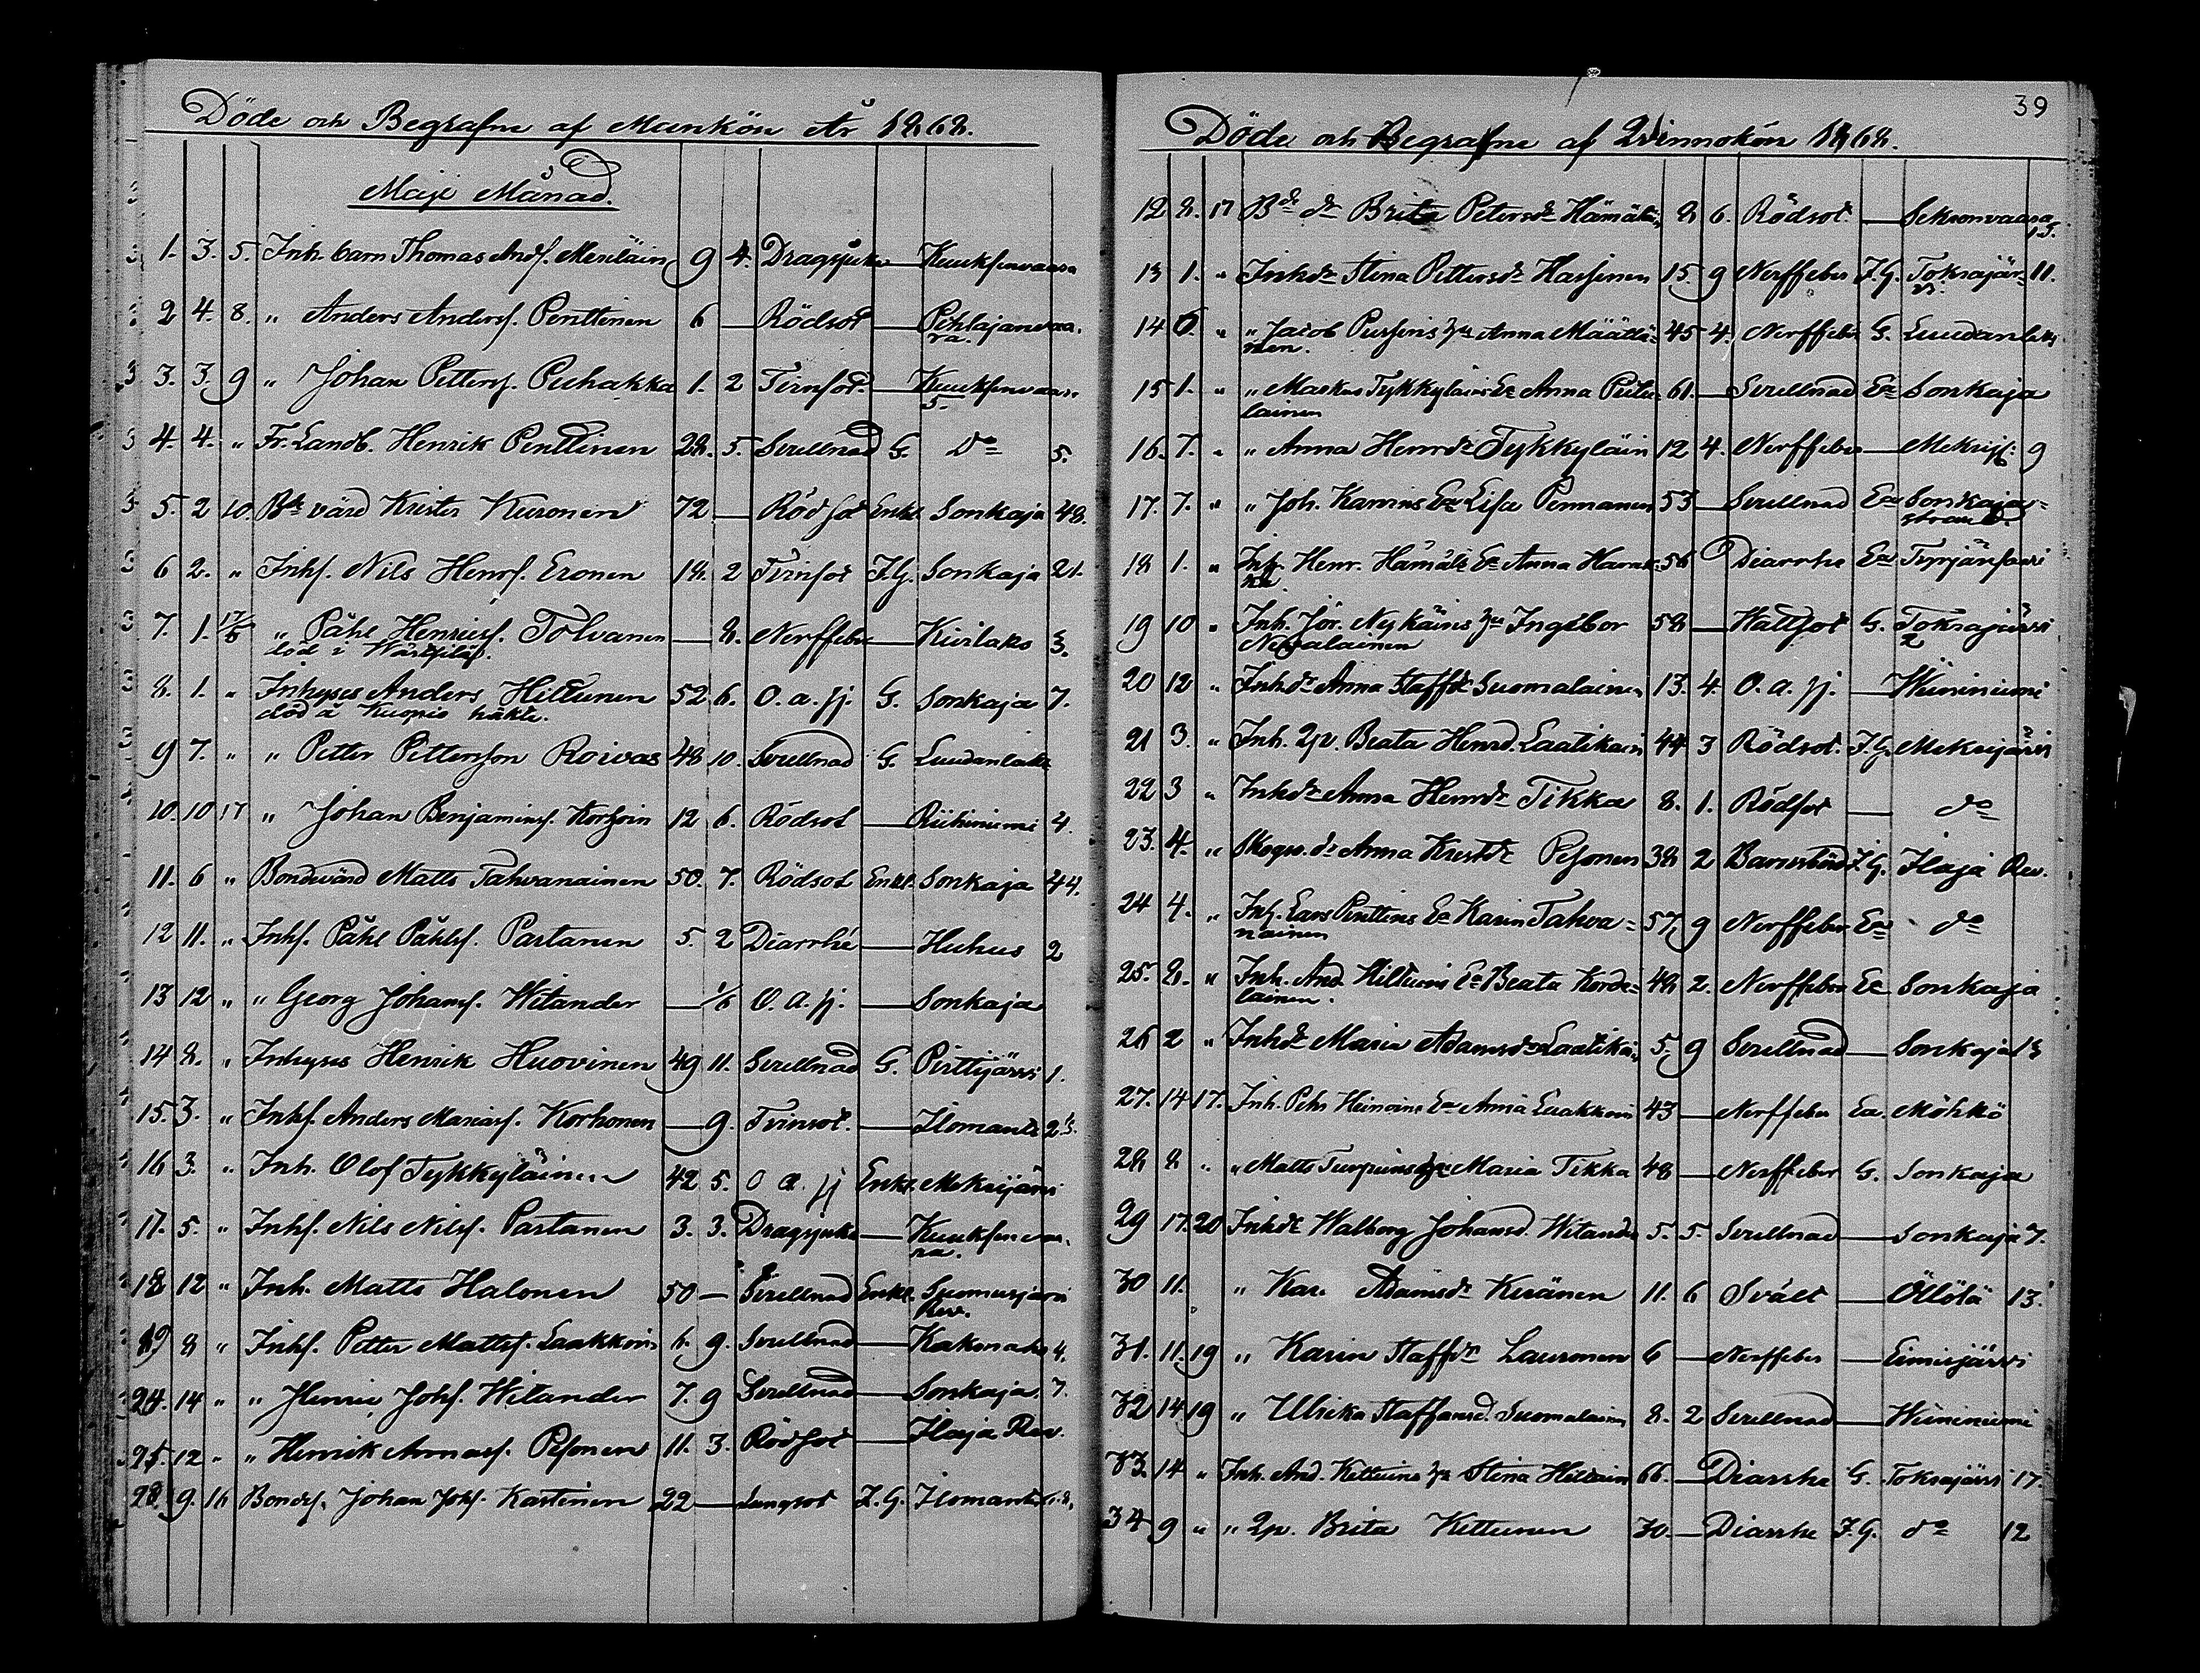 Döde och Begrafne af Mankön År 1868.
Maji Månad.
1. 3. 5. Inh. barn Thomas Andf. Meriläin 9 4. Dragsjuka — Kuuksenvaara
2 4. 8. " Anders Andersf. Penttinen 6 — Rödsot — Pihlajanvaa-
ra.
3. 3. 9 " Johan Pettersf. Puhakka 1. 2 Tvinsot — Kuuksenvaara
5.
4. 4. " Fr. Landb. Henrik Penttinen 28. 5. Svullnad G. do 5.
5. 2 10. Bde värd Krister Kuronen 72 — Rödsot Enkl. Sonkaja 48.
6 2. " Inhf. Nils Henrf. Eronen 18. 2 Tvinsot J.G. Sonkaja 21.
7. 1. 17/5 " Påhl Henricsf. Tolvanen — 8. Nerffeber — Kivilaks 3.
död i Wärtsilä.
8. 1. " Inhyses Anders Hiltunen 52 6. O. a. sj. G. Sonkaja 7.
död å Kuopio häkte.
9 7. " " Petter Pettersson Roivas 48 10. Svullnad G. Luudanlaks
10. 10 17 " Johan Benjaminsf. Korhoin 12 6. Rödsot — Riihiniemi 4.
11. 6 " Bondevärd Matts Tahvanainen 50. 7. Rödsot Enkl. Sonkaja 44.
12 11. " Inhf. Påhl Påhlsf. Partanen 5. 2 Diarrhé — Huhus 2
13 12 " " Georg Johansf. Witander — 1/6 O. a. sj. — Sonkaja
14 8. " Inhyses Henrik Huovinen 49 11. Svullnad G. Pirttijärvi 1.
15. 3. " Inhf. Anders Mariasf. Korhonen — 9. Tvinsot. — Ilomants
16 3. " Inh. Olof Tykkyläinen 42 5. O a. sj Enkl. Mekrijärvi
17. 5. " Inhf. Nils Nilsf. Partanen 3. 3. Dragsjuka — Kuuksenvaa-
ra.
18 12 " Inh. Matts Halonen 50 — Svullnad Enkl. Suomusjärvi
Rev.
19 8 " Inhf. Petter Mattsf. Laakkoin 6. 9. Svullnad — Kakonaho 4.
24. 14 " " Henric Johf. Witander 7. 9 Svullnad — Sonkaja. 7.
25. 12 " " Henrik Annasf. Pesonen 11. 3. Rödsot — Ilaja Rev.
28. 9. 16 Bondes. Johan Johf. Kastinen 22 — Lungsot J.G. Ilomants
39
Döde och Begrafne af Qvinnokön 1868.
12 8. 17 Bde dr Brita Petersdr Hämäläin 8 6. Rödsot — Sikronvaara
15.
13 1. " Inhdr Stina Pettersdr Hassinen 15. 9 Nerffeber J.G. Toksajär- 11.
vi.
14 6. " " Jacob Pussins hu Anna Määttä- 45 4. Nerffeber G. Luudanlaks
nen.
15 1. " " Markus Tykkyläins Ea Anna Piiti- 61. — Svullnad Ea Sonkaja
lainen
16. 7. " " Anna Henrdr Tykkyläin 12 4. Nerffeber — Mekrijf. 9
17. 7. " " Joh. Karvins Ea Lisa Pennanen 53 — Svullnad Ea Sonkaja-
strand
18 1. " Inh. Henr. Hämälä Ea Anna Harak- 56 Diarrhe Ea
ka
19 10 " Inh. Jör. Nykäins hu Ingebor 58 — Hallsot G. Toksajärvi
Nevalainen 2
20 12 " Inhdr Anna Staffdr Suomalainen 13. 4. O. a. sj. — Wiininiemi
21 3. " Inh. Qp. Beata Henrd. Laatikain 44 3 Rödsot. J.G. Mekrijärvi
22 3 " Inhdr Anna Henrdr Tikka 8. 1. Rödsot — do
23. 4. " Skogv. dr Anna Kristdr Pesonen 38 2 Barnsbörd J.G. Ilaja Rev.
24 4. " Inh. Lars Penttins Ea Karin Tahva- 57. 9 Nerffeber Ea do
nainen
25. 8. " Inh. And. Hiltuins Ea Beata Korde- 48 2. Nerffeber Ea Sonkaja
lainen.
26 2 " Inhdr Maria Adamsdr Laatikai 5. 9 Svullnad — Sonkaja 13
27. 14 17. Inh. Pehr Heinoins Ea Anna Laakkoin 43 — Nerffeber Ea. Möhkö
28 8 " " Matts Turpiins hu Maria Tikka 48 — Nerffeber G. Sonkaja
29 17. 20 Inhdr Walborg Johansd. Witander 5. 5. Svullnad — Sonkaja 7.
30 11. " " Kar. Adamsdr Kiränen 11. 6 Svält — Öllölä 13.
31. 11. 19 " Karin Staffdr Lauronen 6 — Nerffeber — Eimisjärvi
32 14 19 " Ulrika Staffansd. Suomalainen 8. 2 Svullnad — Wiininiemi
33. 14 " Inh. And. Kettuins hu Stina Hiltuin 66. — Diarrhe G. Toksajärvi 17.
34 9 " " Qp. Brita Kettunen 30. — Diarrhe J.G. do 12